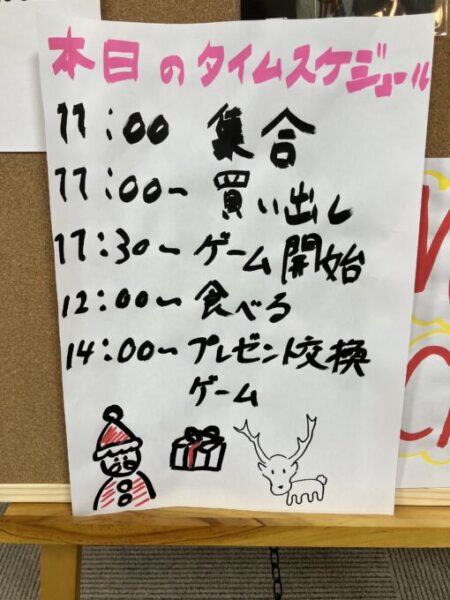 本日のタイムスケジュール
11:00 集合
11:00～ 買い出し
11:30～ ゲーム開始
12:00～ 食べる
14:00～ プレゼント交換
ゲーム